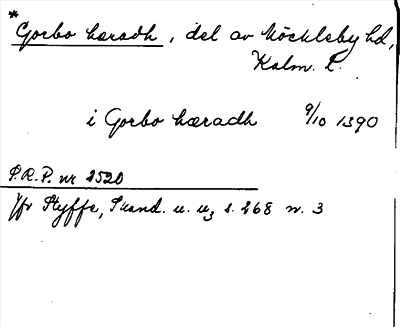 *
Gorbo hæradh, del av Möckleby hd,
Kalm. l.
i Gorbo hæradh 9/10 1390
P.R.P. nr 2520
Jfr Styffe, Skand. u. u, s. 268 n. 3